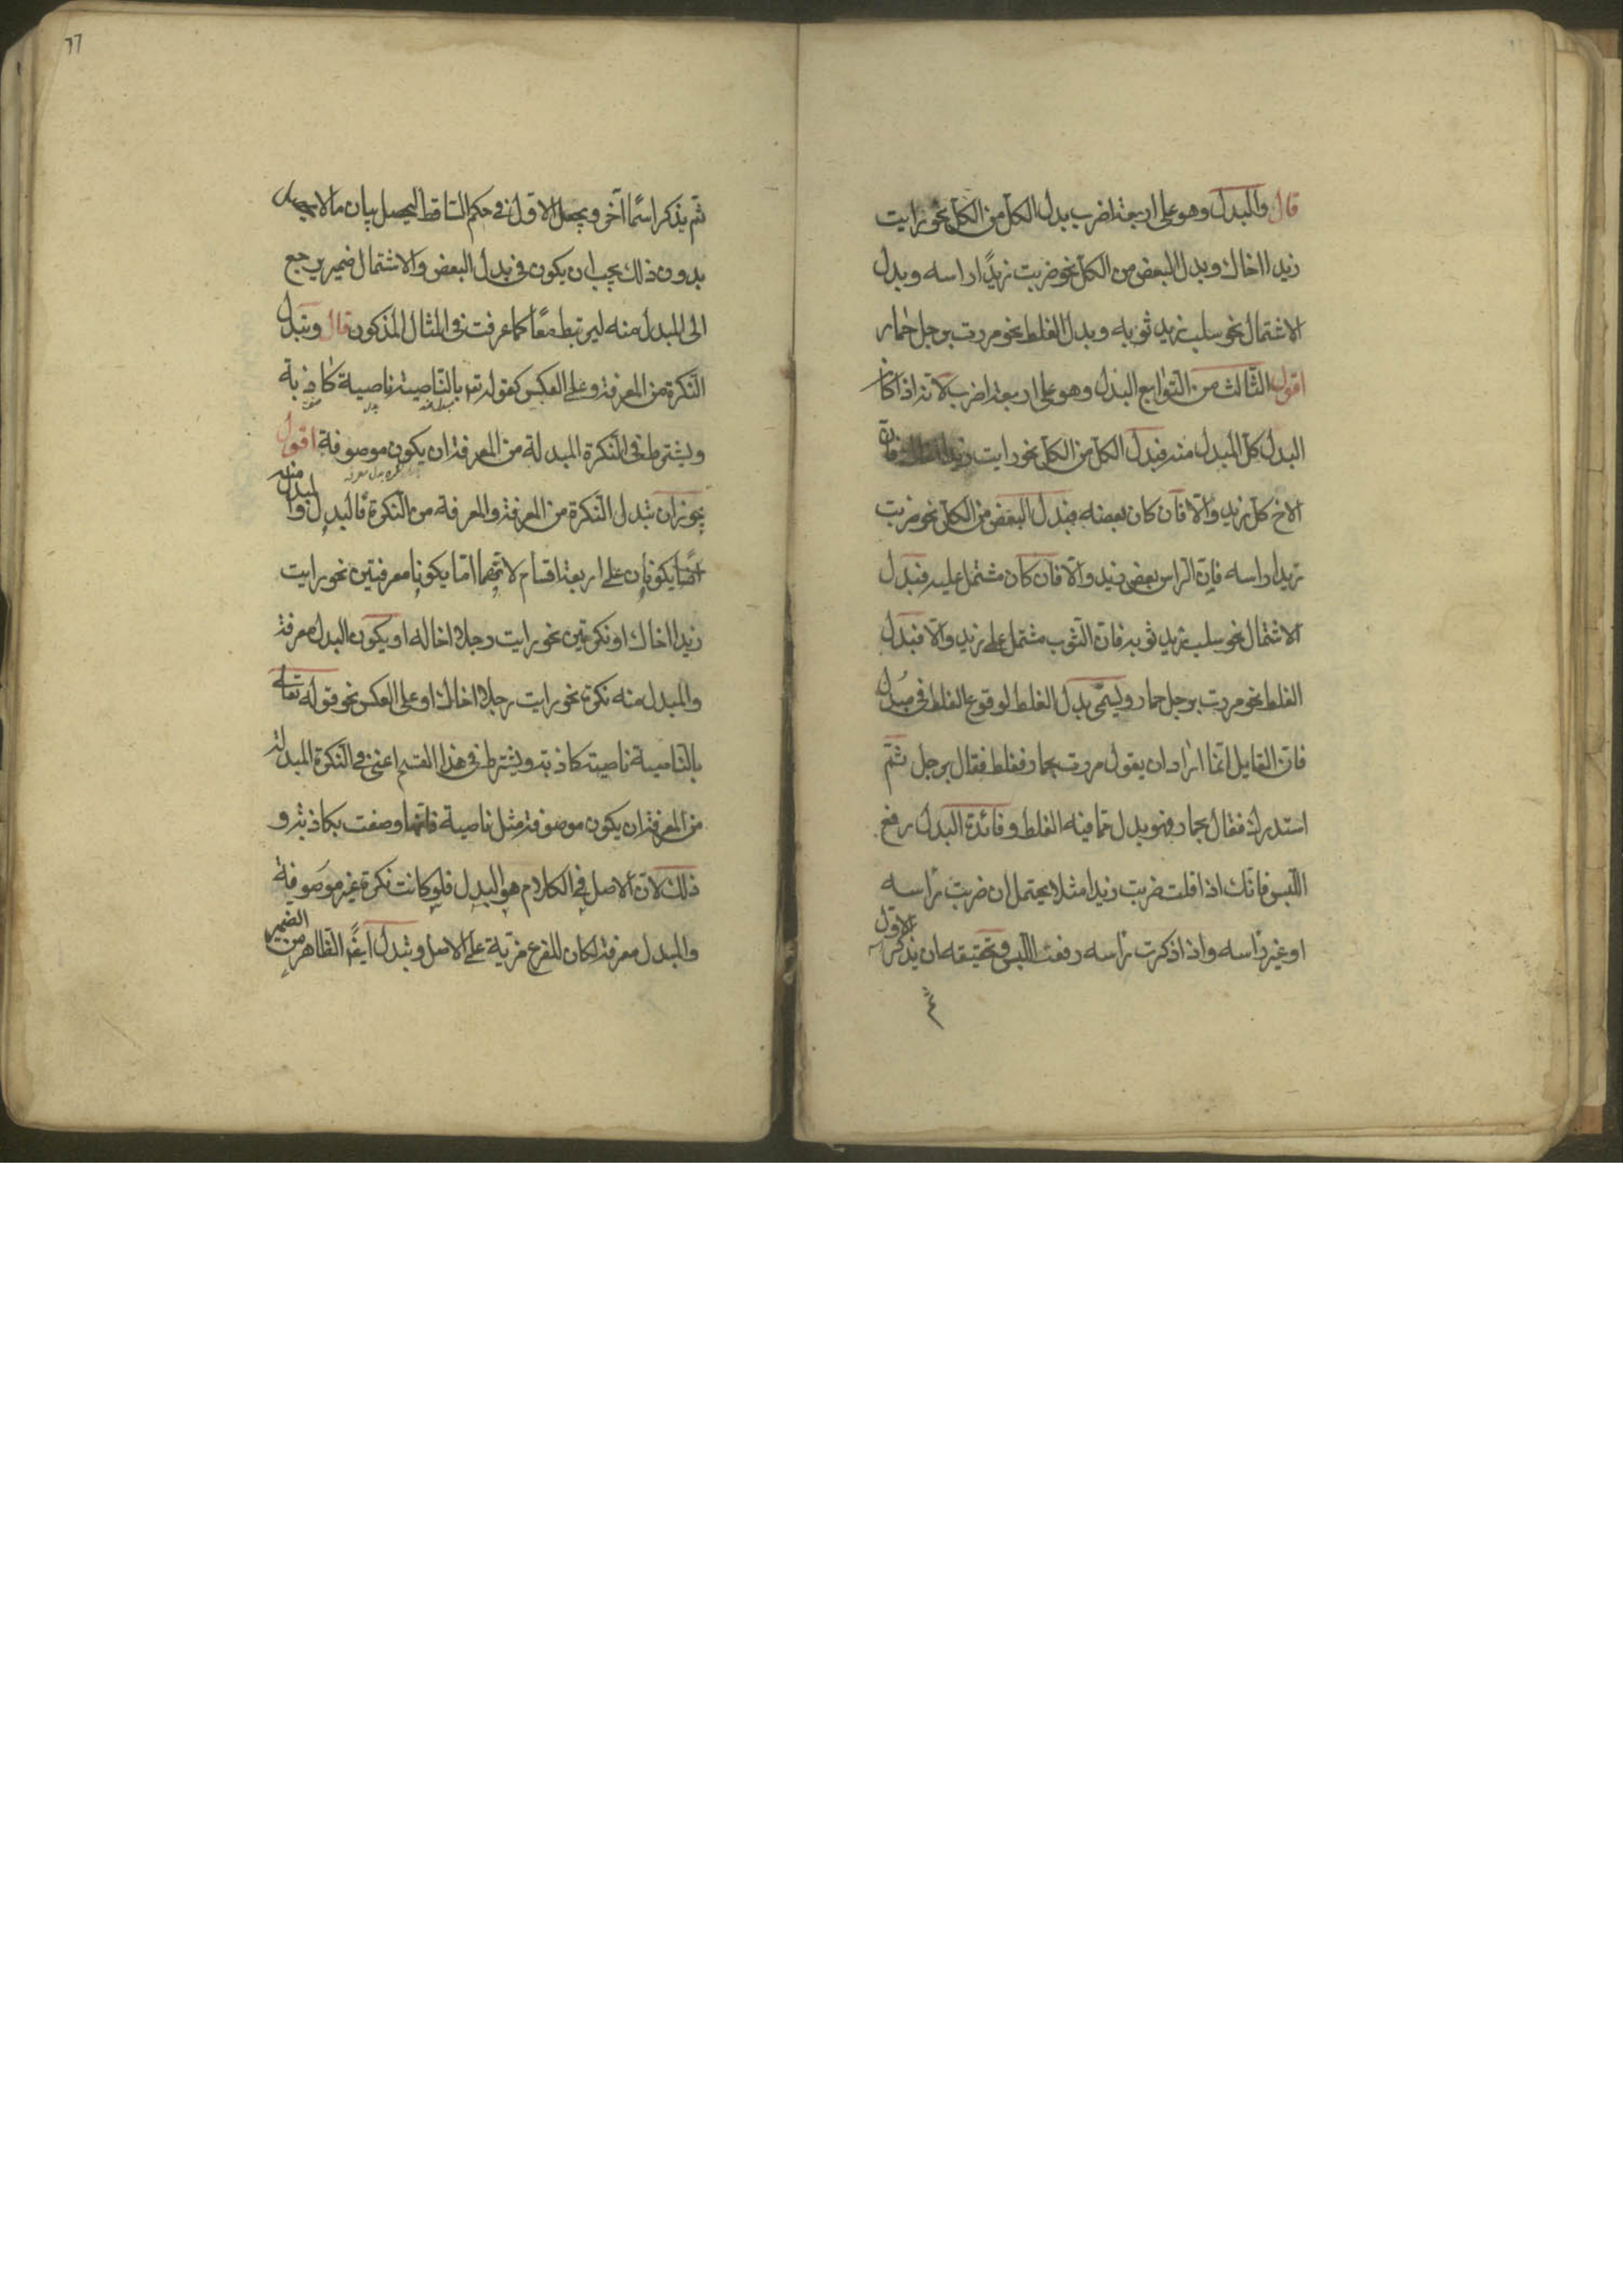 قال والبدل وهو على اربعة اضرب بدل الكل من الكل نحو رايت
زيدا اخاك وبدل البعض من الكل نحو ضربت زيدًا راسه وبدل
الاشتمال نحو سلب زيد ثوبه وبدل الغلط نحو مررت برجل حمار
اقول الثالث من التوابع البدل وهو على اربعة اضرب لانه اذا كان
البدل كل المبدل منه فبدل الكل من الكل نحو رايت زيدا اخاك فان
الاخ كل زيد والّا فان كان بعضه فبدل البعض من الكل نحو ضربت
زيدا راسه فان الراس بعض زيد والّا فان كان مشتمل عليه فبدل
الاشتمال نحو سلب زيد ثوبه فان الثوب مشتمل على زيد والّا فبدل
الغلط نحو مررت برجل حمار ويسمّى بدل الغلط لوقوع الغلط في مبدل
فان القايل انما اراد ان يقول مررت بحمار فغلط فقال برجل ثم
استدرك فقال بحمار فهو بدل عما فيه الغلط وفائدة البدل رفع
اللبس فانك اذا قلت ضربت زيدا مثلا يحتمل ان ضربت راسه
او غير راسه واذا ذكرت راسه رفعت اللبس وتحقيقه ان يذكر الاول
ثم يذكر اسمًا آخر ويجعل الاول في حكم الساقط ليحصل بيان ما لا يحصل
بدون ذلك يجب ان يكون في بدل البعض والاشتمال ضمير يرجع
الى المبدل منه ليرتبط معًا كما عرفت في المثال المذكور قال وتبدل
النكرة من المعرفة وعلى العكس كقوله تع بالناصية ناصية كاذبة
مبدل منه بدل صفت
ويشترط في النكرة المبدلة من المعرفة ان يكون موصوفة اقول
يجوز ان تبدل النكرة من المعرفة والمعرفة من النكرة فالبدل والمبدل منه
ايضًا يكونان على اربعة اقسام لانهما امّا يكونا معرفتين نحو رايت
زيدا اخاك او نكرتين نحو رايت رجلا اخا له او يكون البدل معرفة
والمبدل منه نكرة نحو رايت رجلا اخاك او على العكس نحو قوله تعالى
بالناصية ناصية كاذبة ويشترط في هذا القسم اعني في النكرة المبدلة
من المعرفة ان يكون موصوفة مثل ناصية فانها وصفت بكاذبة و
ذلك لان الاصل في الكلام هو البدل فلو كانت نكرة غير موصوفة
والمبدل معرفة لكان للفرع مزية على الاصل وتبدل ايضًا الظاهر من الضمير